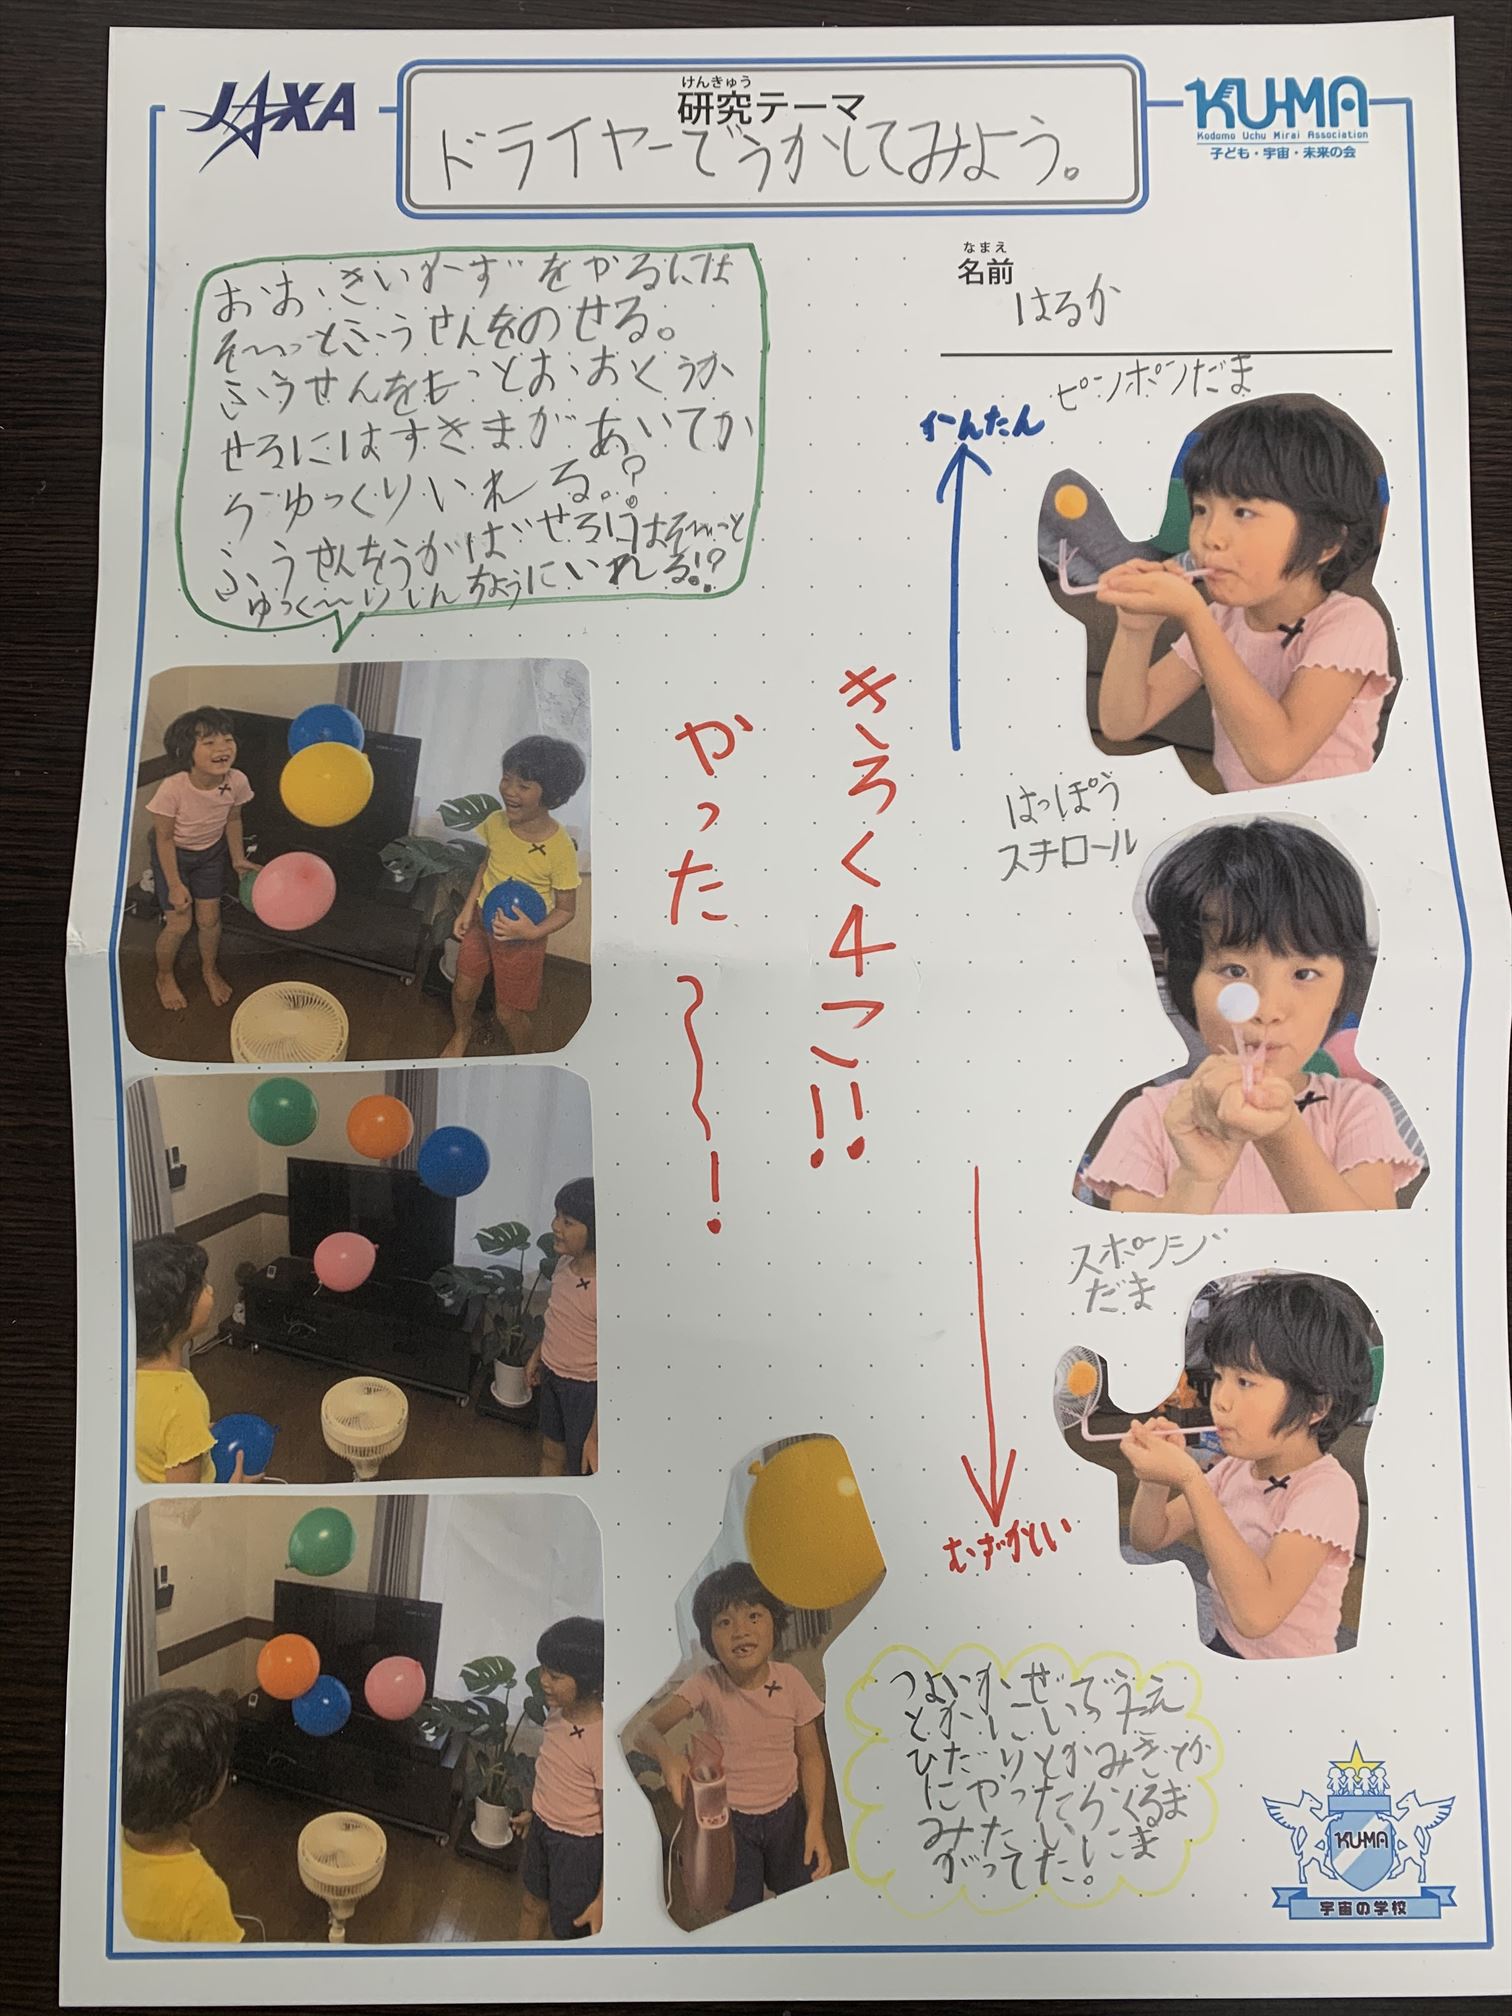 JAXA
けんきゅう
研究テーマ
ドライヤーでうかしてみよう。
KU-MA
Kodomo Uchu Mirai Association
子ども・宇宙・未来の会
なまえ
名前
はるか
を かるには
そ〜っとふうせんをのせる。
ふうせんをもっとおおくうか
せるにはすきまがあいてか
らゆっくりいれる。?
ふうせんをうかばせるにはそ〜っと
ゆっく〜りしんちょうにいれる!?
かんたん
ピンポンだま
はっぽう
スチロール
スポンジ
だま
むずかしい
きろく4こ!!
かった〜〜!
つよいかぜでうえ
とかにいって
ひだりとかみぎとか
にやったらくるま
みたいにま
がってた。
KU-MA
宇宙の学校